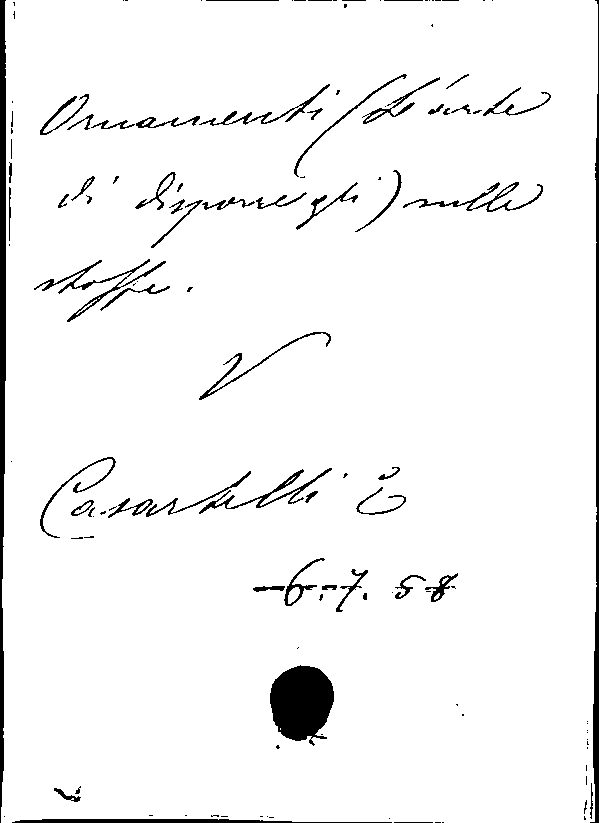 Ornamenti (L'arte
di disporre gli) sulle
stoffe.
V
Casartelli E
6.7.58